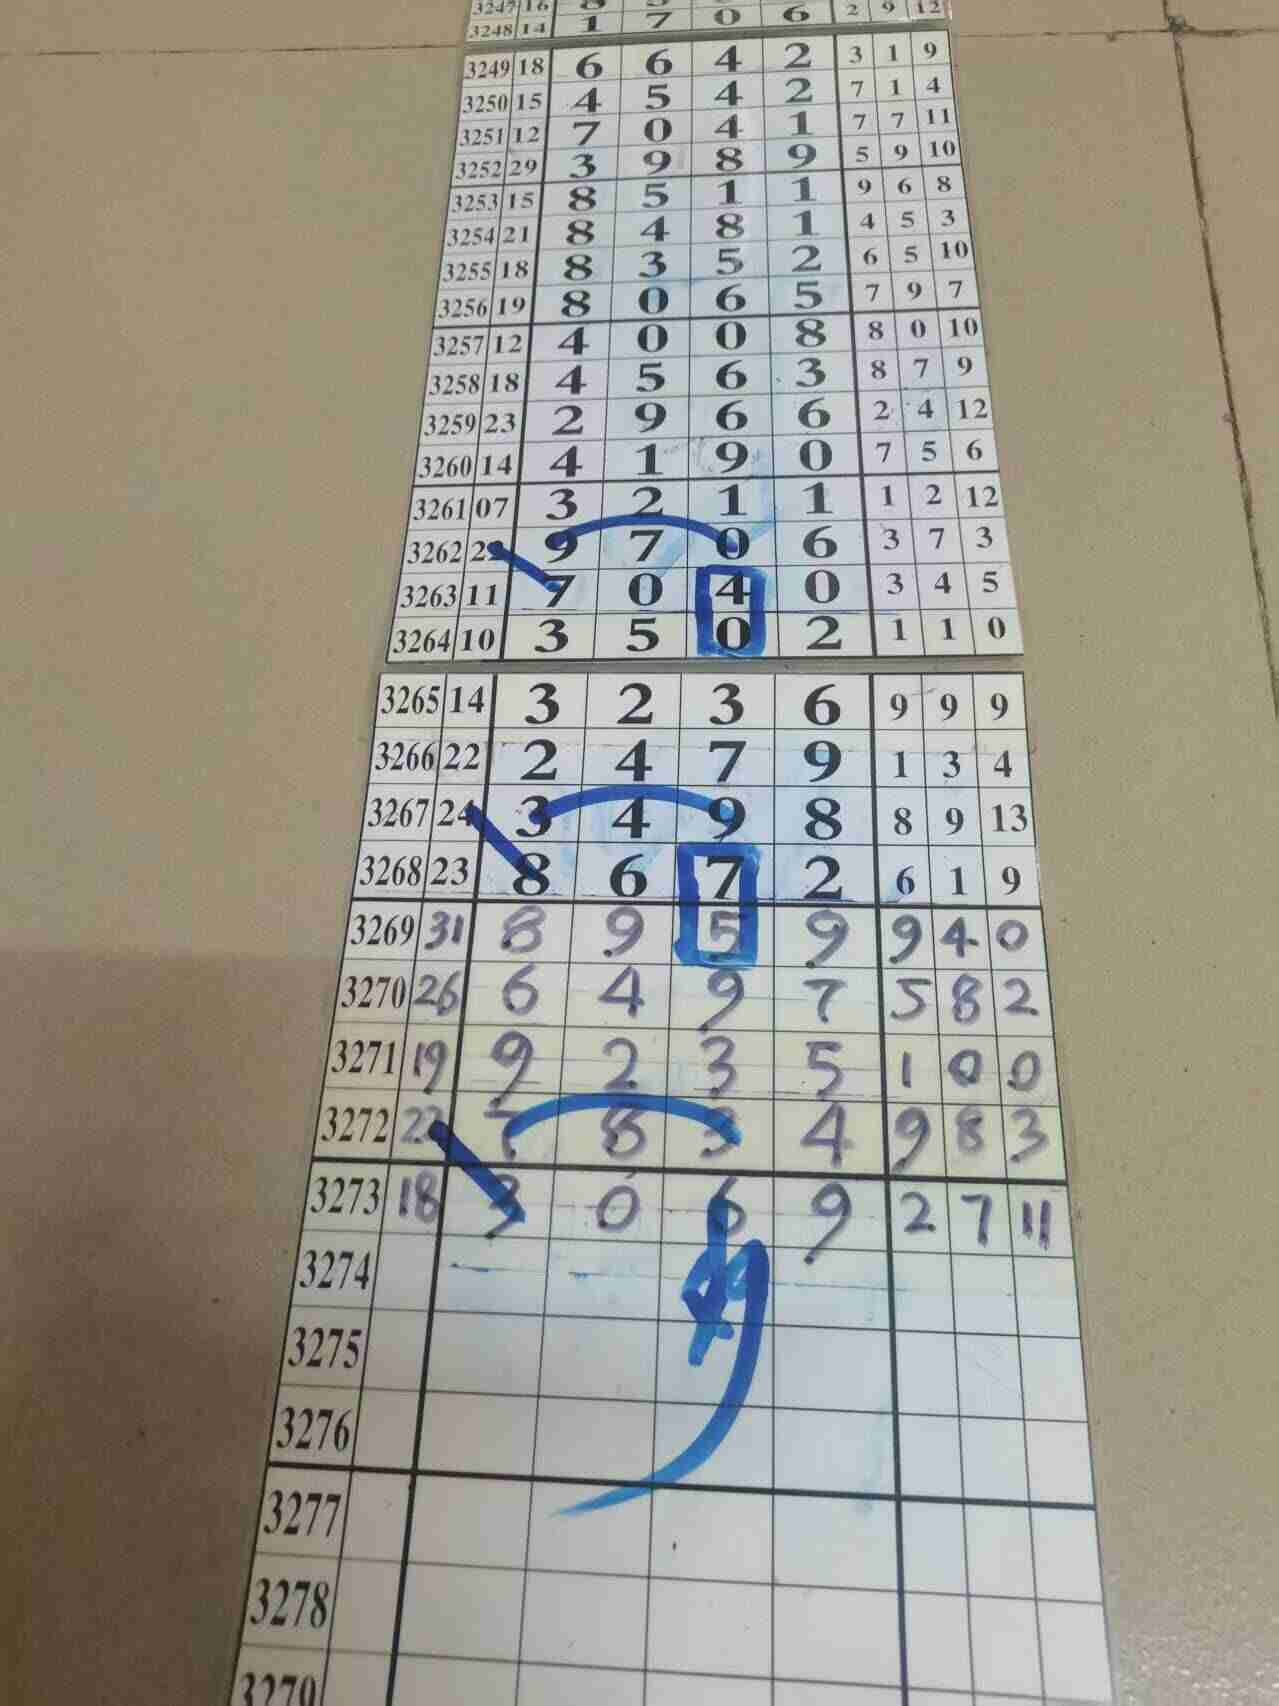 3247 16
3248 14 1 7 0 6 2 9 12
3249 18 6 6 4 2 3 1 9
3250 15 4 5 4 2 7 1 4
3251 12 7 0 4 1 7 7 11
3252 29 3 9 8 9 5 9 10
3253 15 8 5 1 1 9 6 8
3254 21 8 4 8 1 4 5 3
3255 18 8 3 5 2 6 5 10
3256 19 8 0 6 5 7 9 7
3257 12 4 0 0 8 8 0 10
3258 18 4 5 6 3 8 7 9
3259 23 2 9 6 6 2 4 12
3260 14 4 1 9 0 7 5 6
3261 07 3 2 1 1 1 2 12
3262 22 9 7 0 6 3 7 3
3263 11 7 0 4 0 3 4 5
3264 10 3 5 0 2 1 1 0
3265 14 3 2 3 6 9 9 9
3266 22 2 4 7 9 1 3 4
3267 24 3 4 9 8 8 9 13
3268 23 8 6 7 2 6 1 9
3269 31 8 9 5 9 9 4 0
3270 26 6 4 9 7 5 8 2
3271 19 9 2 3 5 1 0 0
3272 22 7 8 3 4 9 8 3
3273 18 3 0 6 9 2 7 11
3274
3275
3276
3277
3278
3279